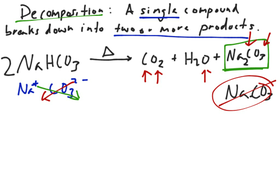 Decomposition: A single compound
breaks down into two or more products.
2NaHCO₃ →Δ CO₂ + H₂O + Na₂CO₃
Na⁺ CO₃²⁻
NaCO₃